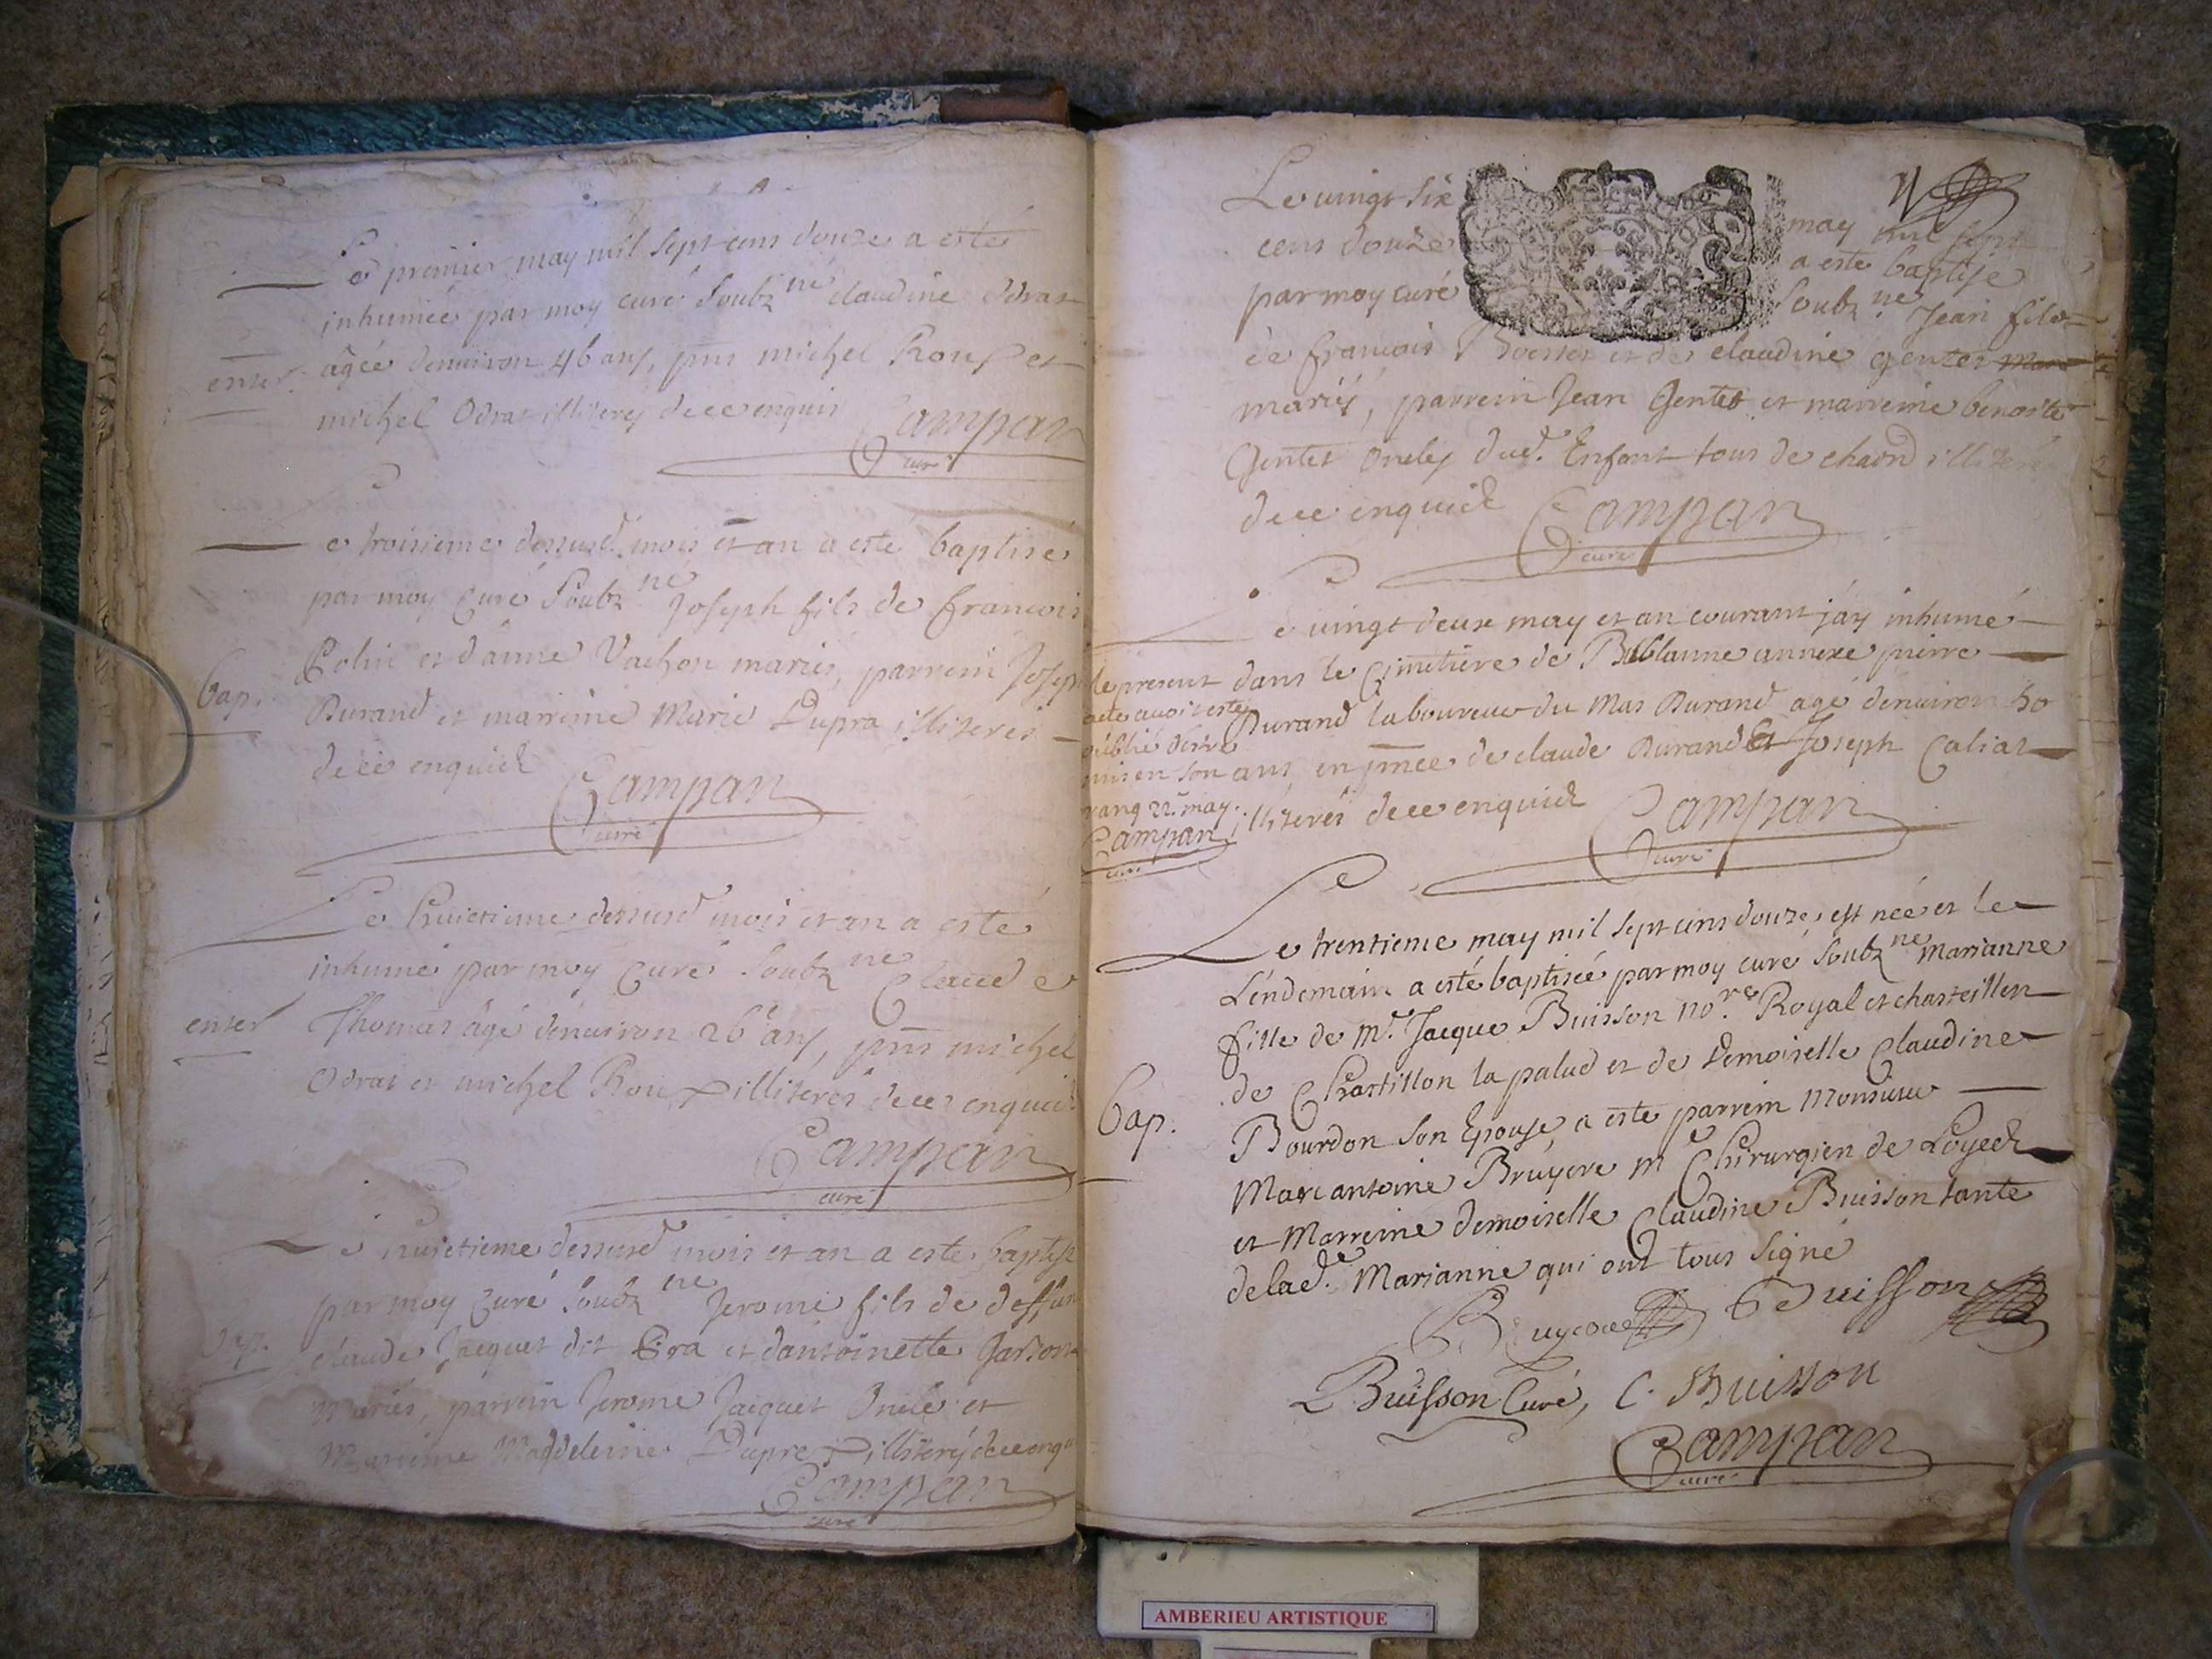 Le premier may mil sept cens douze a esté
inhumée par moy curé soubz né claudine Odrat
enter. âgée denuiron 46 ans, pnts michel Roux et
michel Odrat illiterés de ce enquis
Campan
curé
Le troisieme dessusd. mois et an a esté baptisé
par moy curé soubz né Joseph fils de francois
Colin et d'anne Vachon mariés, parrein Joseph
bap. Durand et marreine Marie Dupra illiterés
de ce enquis
Campan
curé
Le huictieme dessusd mois et an a esté
inhumé par moy curé soubz né Claude
enter Thomas âgé denuiron 26 ans, pnts michel
Odrat et michel Roux illiterés de ce enquis
Campan
curé
Le huictieme dessusd mois et an a esté baptisé
par moy curé soubz né Jerome fils de deffunt
bap. claude Jacquet dit et d'antoinette
mariés, parrein Jerome Jacquet oncle et
Marreine Magdeleine illiterés de ce enq
Campan
curé
Le vingt six may mil sept
cens douze a esté baptisé
par moy curé soubz né Jean fils
de francois et de claudine Gentet
mariés, parrein Jean Gentet et marreine benoite
Gentet oncles dud. Enfant tous de illiterés
de ce enquis Campan
curé
Le vingt deux may et an courant j'ay inhumé
dans le Cimitiere de annexe pierre
Durand laboureur du Mas Durand agé denuiron 50
ans en pnce de claude Durand et Joseph Caliat
illiterés de ce enquis Campan
curé
le present
acte avoit esté
oublié
mis en son
rang 22e may.
Campan
curé
Le trentieme may mil sept cens douze est née et le
Lendemain a esté baptisée par moy curé soubz né marianne
fille de Mr. Jacque Buisson no.re Royal et chastellen
de Chastillon la palud et de Demoiselle Claudine
bap. Bourdon son Epouse, a esté parrein Monsieur
Marcantoine Bruyere me Chirurgien de Loyes
et Marreine demoiselle Claudine Buisson tante
de lad.e Marianne qui ont tous signé
Bruyere Buisson
L Buisson Curé, C. Buisson
Campan
curé
AMBERIEU ARTISTIQUE